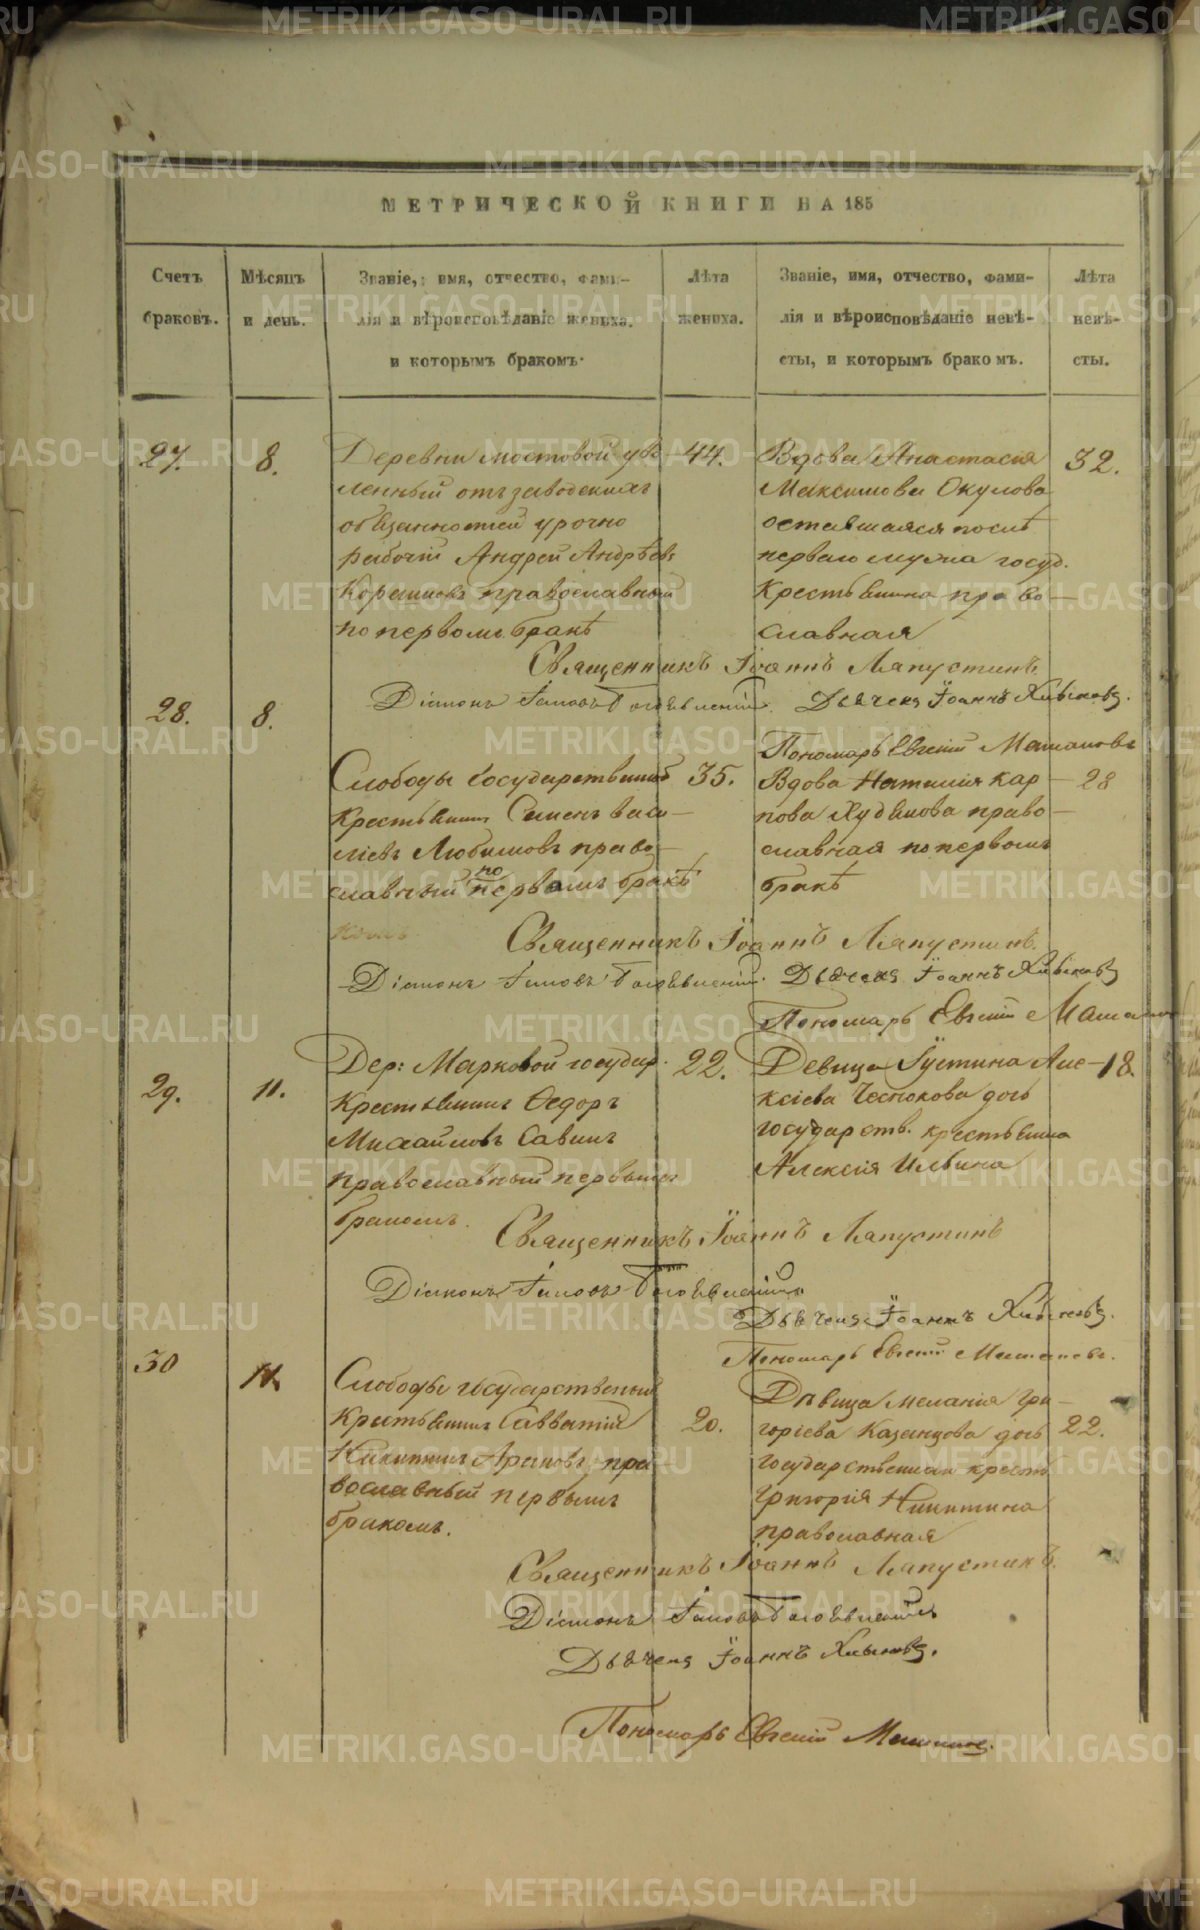 МЕТРИЧЕСКОЙ КНИГИ НА 185
Счетъ браковъ.
Мѣсяцъ и день.
Званіе, имя, отчество, фами-
лія и вѣроисповѣданіе жениха,
и которымъ бракомъ.
Лѣта жениха.
Званіе, имя, отчество, фами-
лія и вѣроисповѣданіе невѣ-
сты, и которымъ бракомъ.
Лѣта невѣ-
сты.
27.
8.
Деревни Мостовой уво
ленный отъ заводскихъ
обязанностей урочно
рабочій Андрей Андрѣевъ
православный
по первомъ бракѣ
44.
Вдова Анастасія
Максимова Окулова
оставшаяся послѣ
перваго мужа госуд.
крестьянина право
славная
32.
Священникъ Іоаннъ Лапустинъ
Діаконъ Іаковъ Богоявленскій
Дьячекъ Іоаннъ Хлыновъ.
Пономарь Евгеній
28.
8.
Слободы Государственной
крестьянинъ Симеонъ Васи
ліевъ Любимовъ право
славный по первомъ бракѣ
35.
Вдова Наталія Кар
пова Худякова право
славная по первомъ
бракѣ
28
Священникъ Іоаннъ Лапустинъ.
Діаконъ Іаковъ Богоявленскій.
Дьячекъ Іоаннъ Хлыновъ
Пономарь Евгеній
29.
11.
Дер: Марковой государ.
крестьянинъ Ѳедоръ
Михайловъ Савинъ
православный первымъ
бракомъ.
22.
Девица Іустина Але
ксіева Чеснокова дочь
государств. крестьянина
Алексія Ильина
18.
Священникъ Іоаннъ Лапустинъ
Діаконъ Іаковъ Богоявленскій
Дьячекъ Іоаннъ Хлыновъ.
Пономарь Евгеній
30
11.
Слободы государственый
крестьянинъ Савватій
Никитинъ Араповъ пра
вославный первымъ
бракомъ.
20.
Дѣвица Меланія Гри
горіева Казанцова дочь
государственнаго крест
Григорія Никитина
православная
22.
Священникъ Іоаннъ Лапустинъ.
Діаконъ Іаковъ Богоявленскій
Дьячекъ Іоаннъ Хлыновъ.
Пономарь Евгеній
METRIKI.GASO-URAL.RU